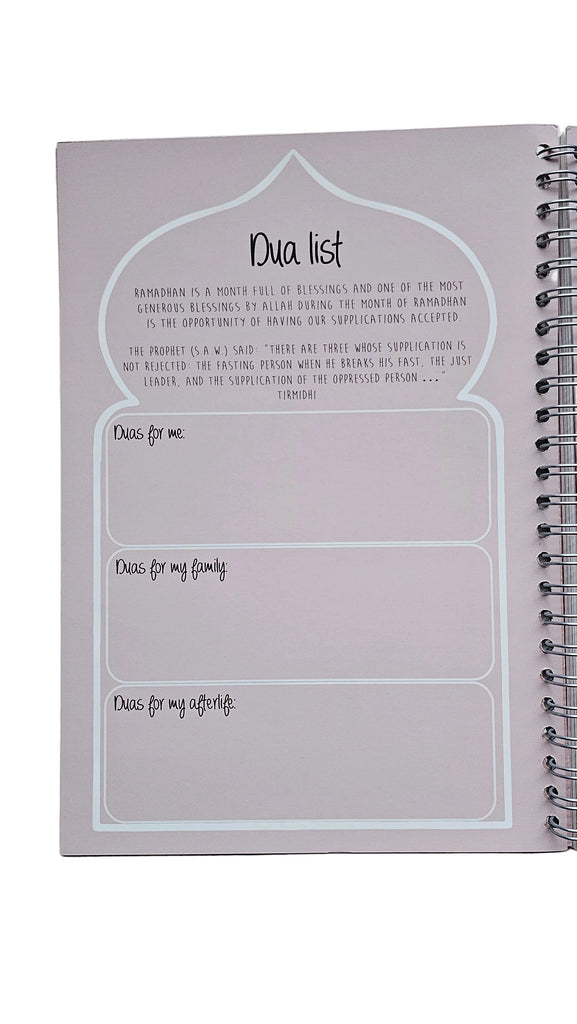 Dua list
RAMADHAN IS A MONTH FULL OF BLESSINGS AND ONE OF THE MOST
GENEROUS BLESSINGS BY ALLAH DURING THE MONTH OF RAMADHAN
IS THE OPPORTUNITY OF HAVING OUR SUPPLICATIONS ACCEPTED.
THE PROPHET (S.A.W.) SAID: "THERE ARE THREE WHOSE SUPPLICATION IS
NOT REJECTED: THE FASTING PERSON WHEN HE BREAKS HIS FAST, THE JUST
LEADER, AND THE SUPPLICATION OF THE OPPRESSED PERSON ..."
TIRMIDHI
Duas for me:
Duas for my family:
Duas for my afterlife: